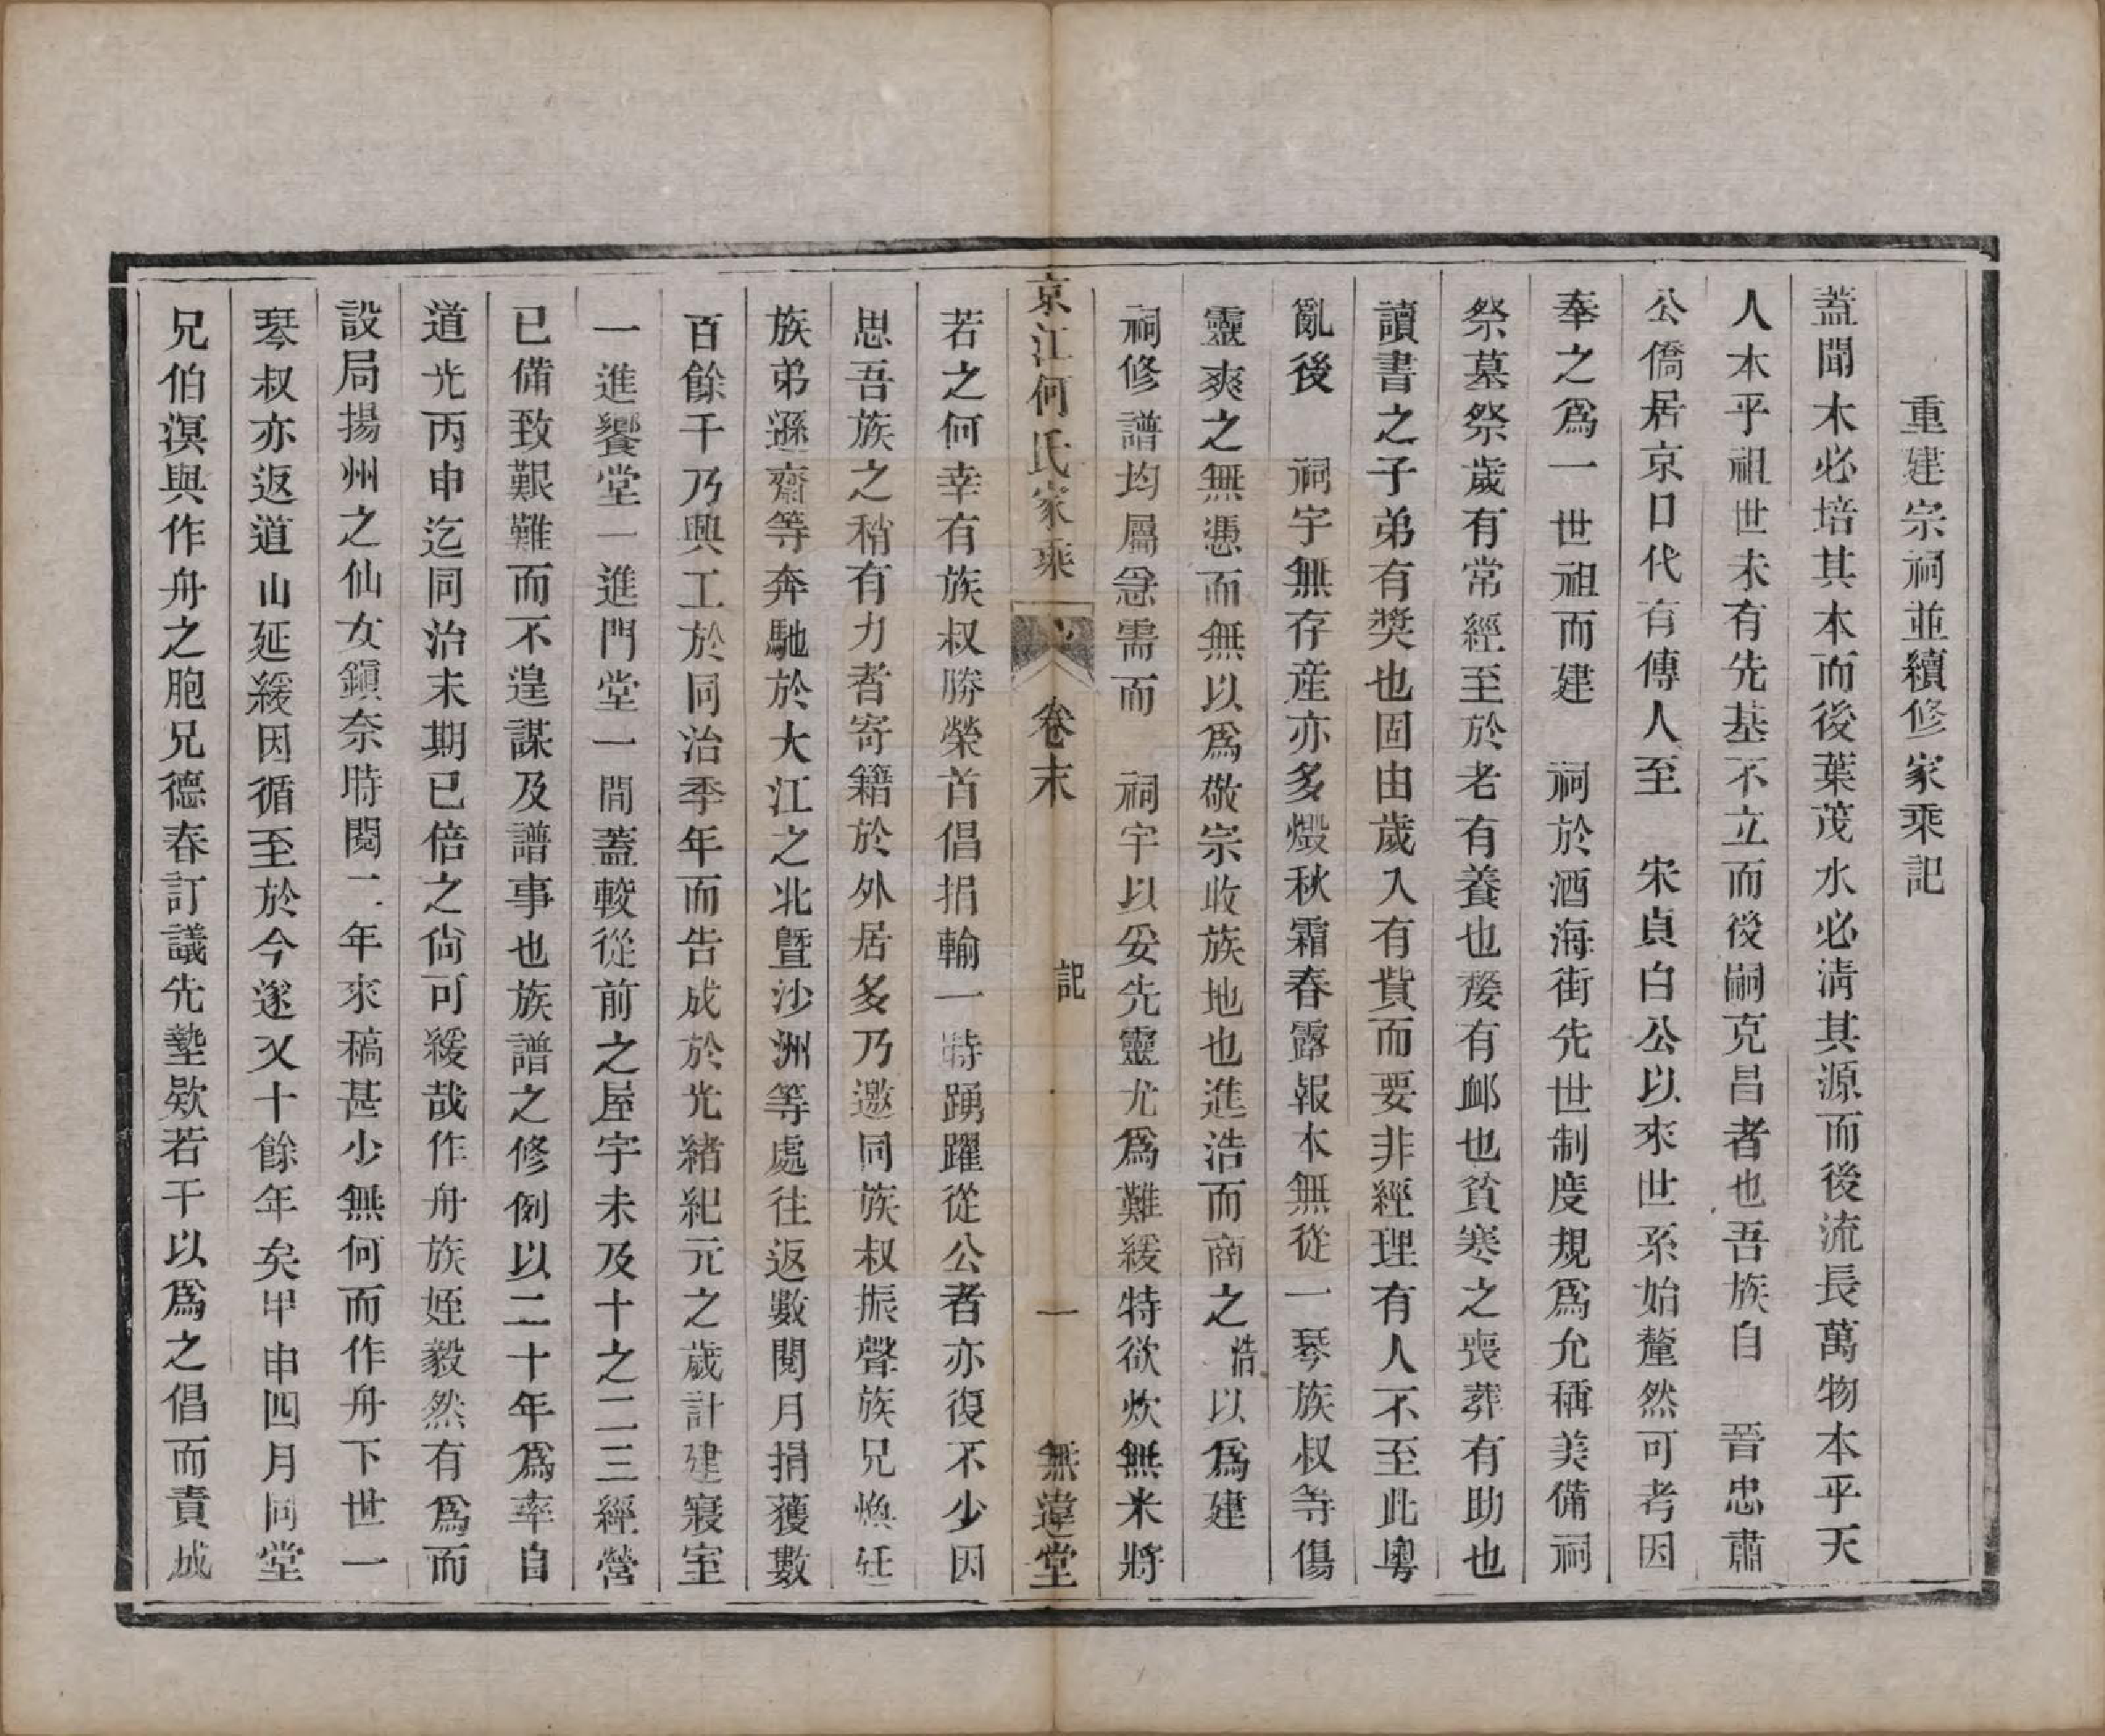 重建宗祠並續修家乘記
蓋聞木必培其本而後葉茂水必淸其源而後流長萬物本乎天
人本乎祖世未有先基不立而後嗣克昌者也吾族自　晉忠肅
公僑居京口代有傳人至　宋貞白公以來世系始釐然可考因
奉之爲一世祖而建　祠於酒海街先世制度規爲允稱美備祠
祭墓祭歲有常經至於老有養也嫠有䘏也貧寒之喪葬有助也
讀書之子弟有獎也固由歲入有貲而要非經理有人不至此粵
亂後　祠宇無存産亦多燬秋霜春露報本無從一琴族叔等傷
靈爽之無憑而無以爲敬宗收族地也進浩而商之浩以爲建
祠修譜均屬急需而　祠宇以妥先靈尤爲難緩特欲炊無米將
京江何氏家乘　卷末　記　一　無違堂
若之何幸有族叔勝榮首倡捐輸一時踴躍從公者亦復不少因
思吾族之稍有力者寄籍於外居多乃邀同族叔振聲族兄煥廷
族弟遜齋等奔馳於大江之北曁沙洲等處往返數閱月捐獲數
百餘千乃興工於同治季年而告成於光緒紀元之歲計建寢室
一進饗堂一進門堂一間蓋較從前之屋宇未及十之二三經營
已備致艱難而不遑謀及譜事也族譜之修例以二十年爲率自
道光丙申迄同治末期已倍之尙可緩哉作舟族姪毅然有爲而
設局揚州之仙女鎭奈時閱二年來稿甚少無何而作舟下世一
琴叔亦返道山延緩因循至於今遂又十餘年矣甲申四月同堂
兄伯溟與作舟之胞兄德春訂議先墊欵若干以爲之倡而責成